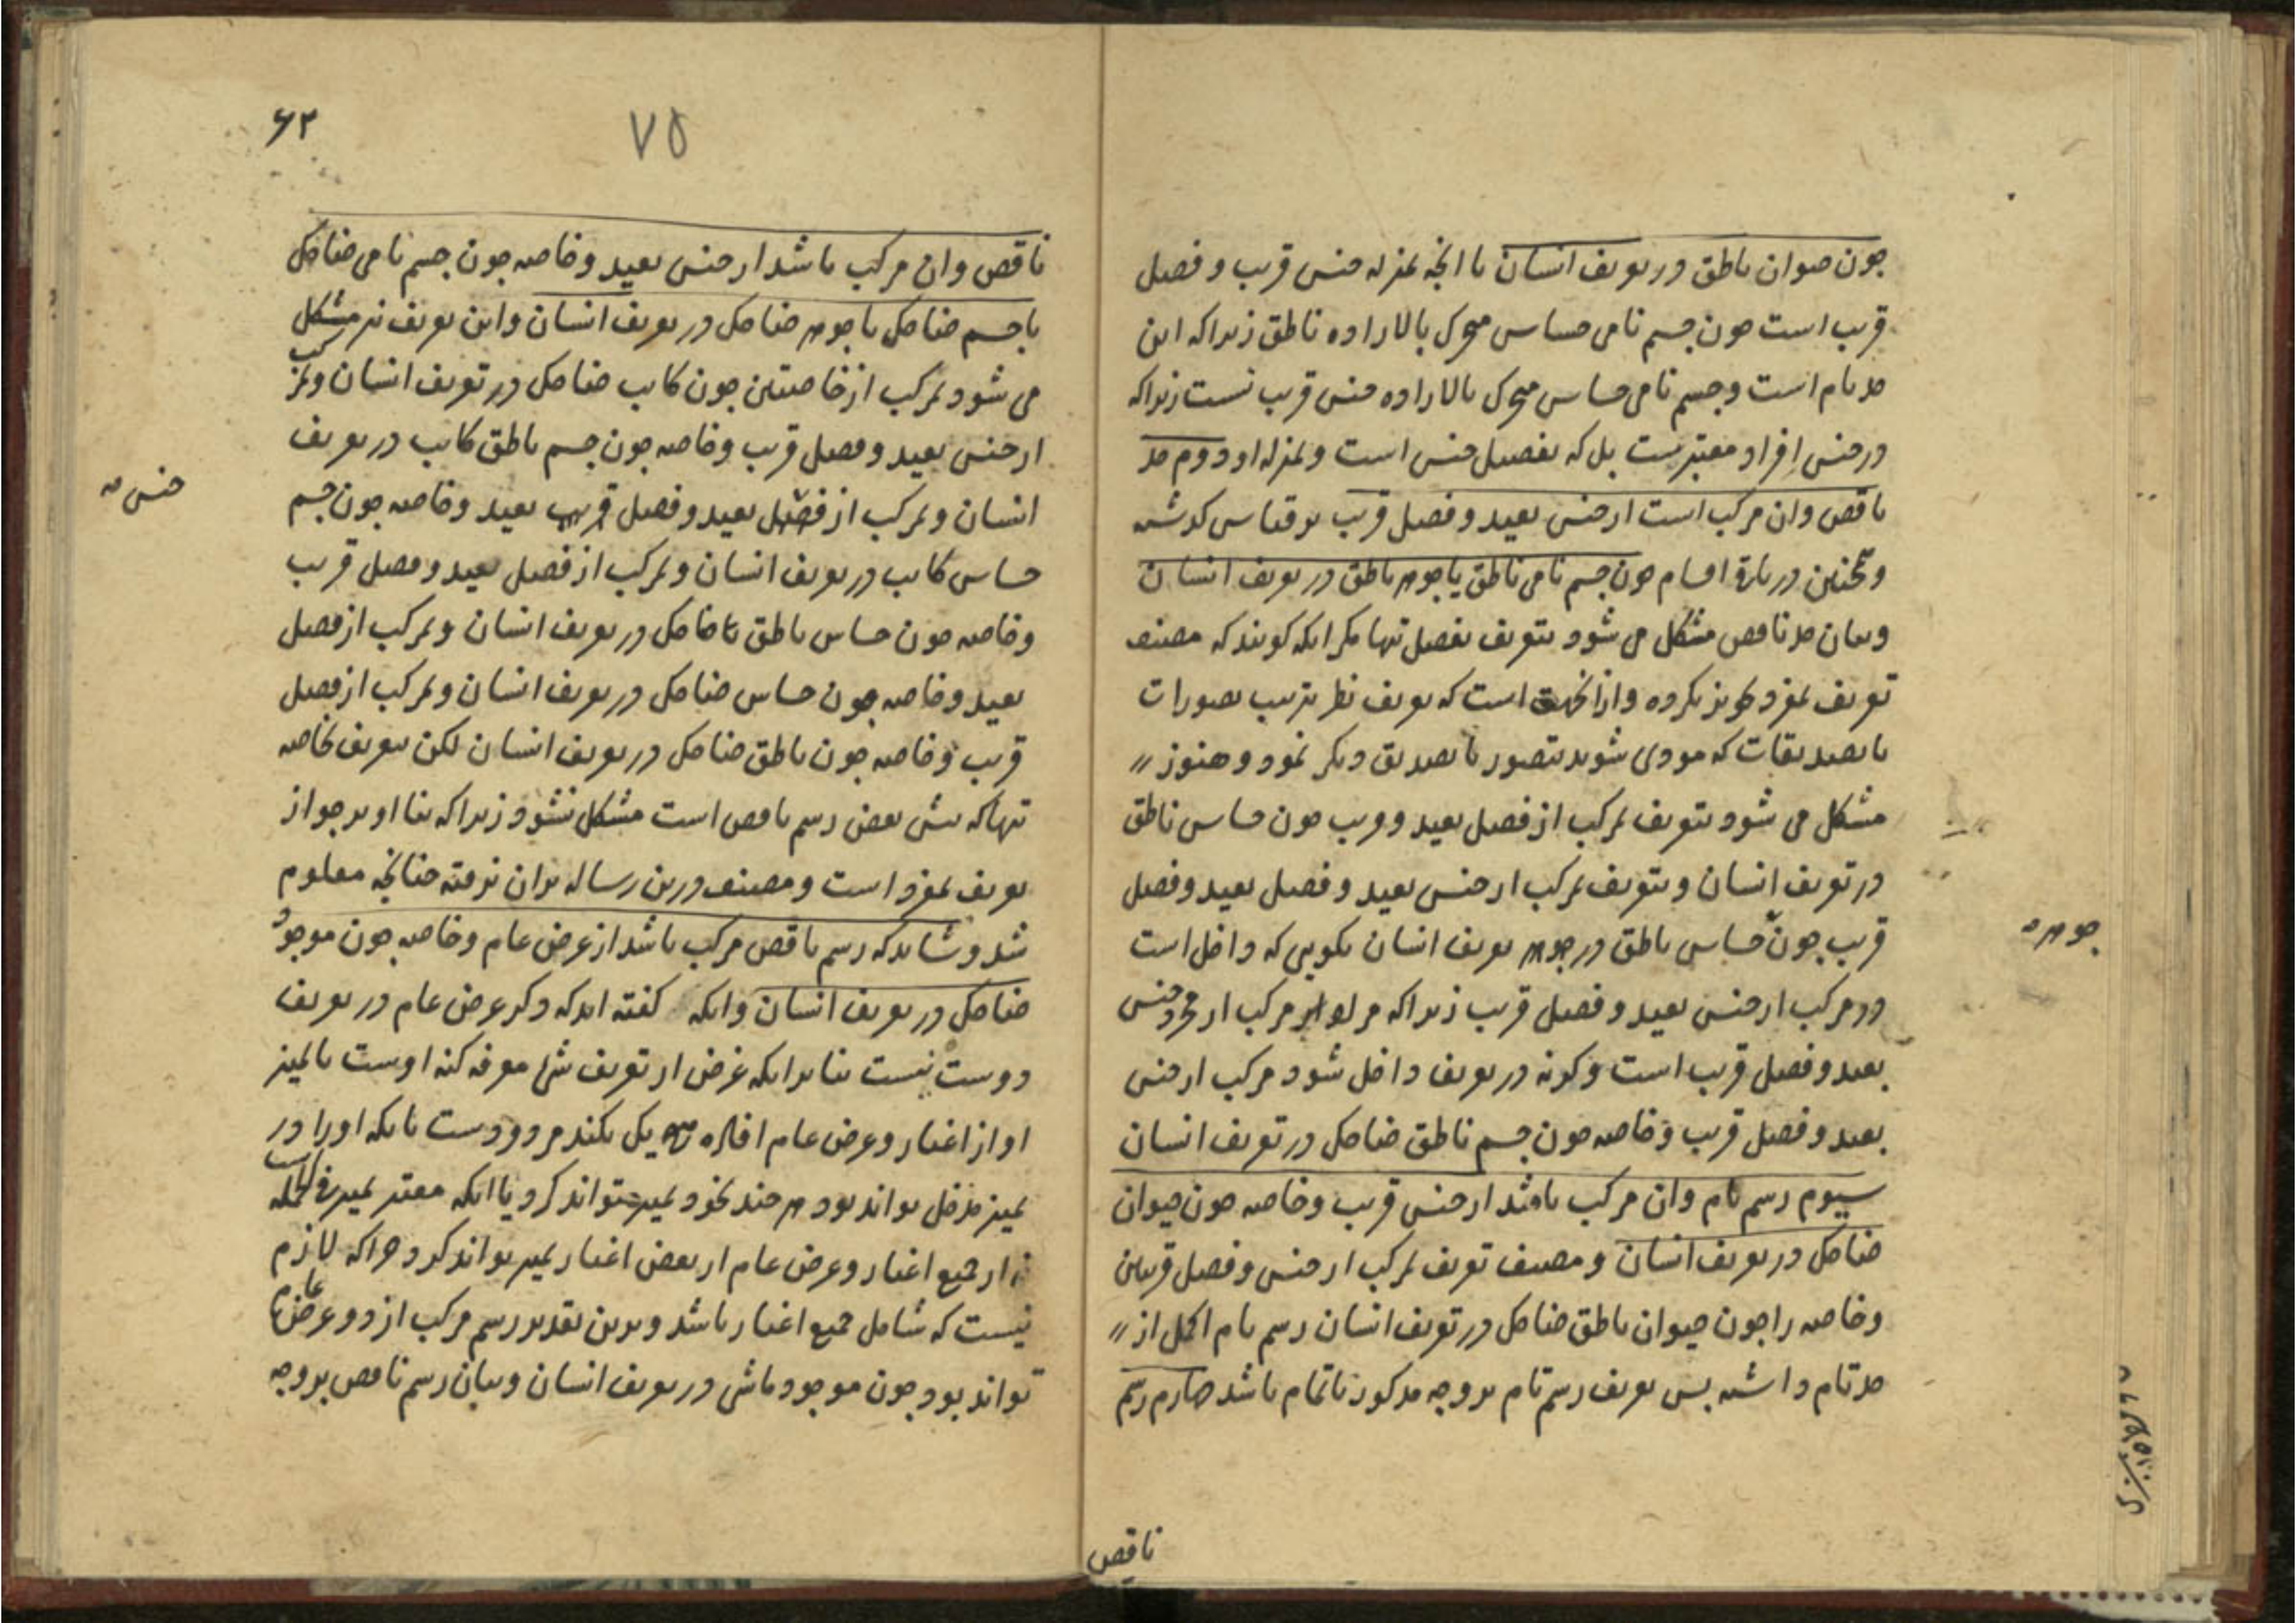 چون حیوان ناطق در تعریف انسان یا آنچه بمنزله جنس قریب و فصل
قریب است چون جسم نامی حساس متحرک بالاراده ناطق زیراکه این
حد تام است و جسم نامی حساس متحرک بالاراده جنس قریب نیست زیراکه
در جنس افراد معتبرست بل که تفصیل جنس است و بمنزله او دوم حد
ناقص وان مرکب است از جنس بعید و فصل قریب بر قیاس گذشته
و همچنین در باره اقسام چون جسم نامی ناطق یا جوهر ناطق در تعریف انسان
و بیان حد ناقص مشکل می شود بتعریف بفصل تنها مگر آنکه گویند که مصنف
تعریف بمفرد تجویز نکرده و از آنجهت است که تعریف نظر بترتیب تصورات
یا تصدیقات که مودی شوند بتصور یا تصدیق دیگر نمود و هنوز
مشکل می شود بتعریف بمرکب از فصل بعید و قریب چون حساس ناطق
در تعریف انسان و بتعریف بمرکب از جنس بعید و فصل بعید و فصل
قریب چون حساس ناطق در جوهر تعریف انسان نگویی که داخل است
در مرکب از جنس بعید و فصل قریب زیراکه مراد از مرکب از مجرد جنس
بعید و فصل قریب است وگرنه در تعریف داخل شود مرکب از جنس
بعید و فصل قریب و خاصه چون جسم ناطق ضاحک در تعریف انسان
سیوم رسم تام وان مرکب باشد از جنس قریب و خاصه چون حیوان
ضاحک در تعریف انسان و مصنف تعریف بمرکب از جنس و فصل قریبین
و خاصه را چون حیوان ناطق ضاحک در تعریف انسان رسم تام اکمل از
حد تام داشته پس تعریف رسم تام بر وجه مذکور ناتمام باشد چهارم رسم
جوهر
ناقص
۶۳
۷۵
ناقص وان مرکب باشد از جنس بعید و خاصه چون جسم نامی ضاحک
یا جسم ضاحک یا جوهر ضاحک در تعریف انسان و این تعریف نیز مشکل
می شود بمرکب از خاصتین چون کاتب ضاحک در تعریف انسان و بمرکب
از جنس بعید و فصل قریب و خاصه چون جسم ناطق کاتب در تعریف
انسان و بمرکب از فصل بعید و فصل قریب بعید و خاصه چون جسم
جنس
حساس کاتب در تعریف انسان و بمرکب از فصل بعید و فصل قریب
و خاصه چون حساس ناطق ضاحک در تعریف انسان و بمرکب از فصل
بعید و خاصه چون حساس ضاحک در تعریف انسان و بمرکب از فصل
قریب و خاصه چون ناطق ضاحک در تعریف انسان لکن بتعریف بخاصه
تنها که پیش بعض رسم ناقص است مشکل نشود زیراکه بناء او بر جواز
تعریف بمفرد است و مصنف درین رساله بران نرفته چنانچه معلوم
شد و شاید که رسم ناقص مرکب باشد از عرض عام و خاصه چون موجود
ضاحک در تعریف انسان وانکه گفته اند که ذکر عرض عام در تعریف
درست نیست بنا برانکه غرض از تعریف شئ معرفه کنه اوست یا تمیز
او از اغیار و عرض عام افاده یک نکند مردودست بانکه او را در
تمیز مدخل تواند بود هر چند بخود تمیز نتواند کرد یا انکه معتبر تمیز فی الجمله است
نه از جمیع اغیار و عرض عام از بعض اغیار تمیز تواند کرد چراکه لازم
نیست که شامل جمیع اغیار باشد و برین تقدیر رسم مرکب از دو عرض عام
تواند بود چون موجود ماشی در تعریف انسان و بیان رسم ناقص بر وجه